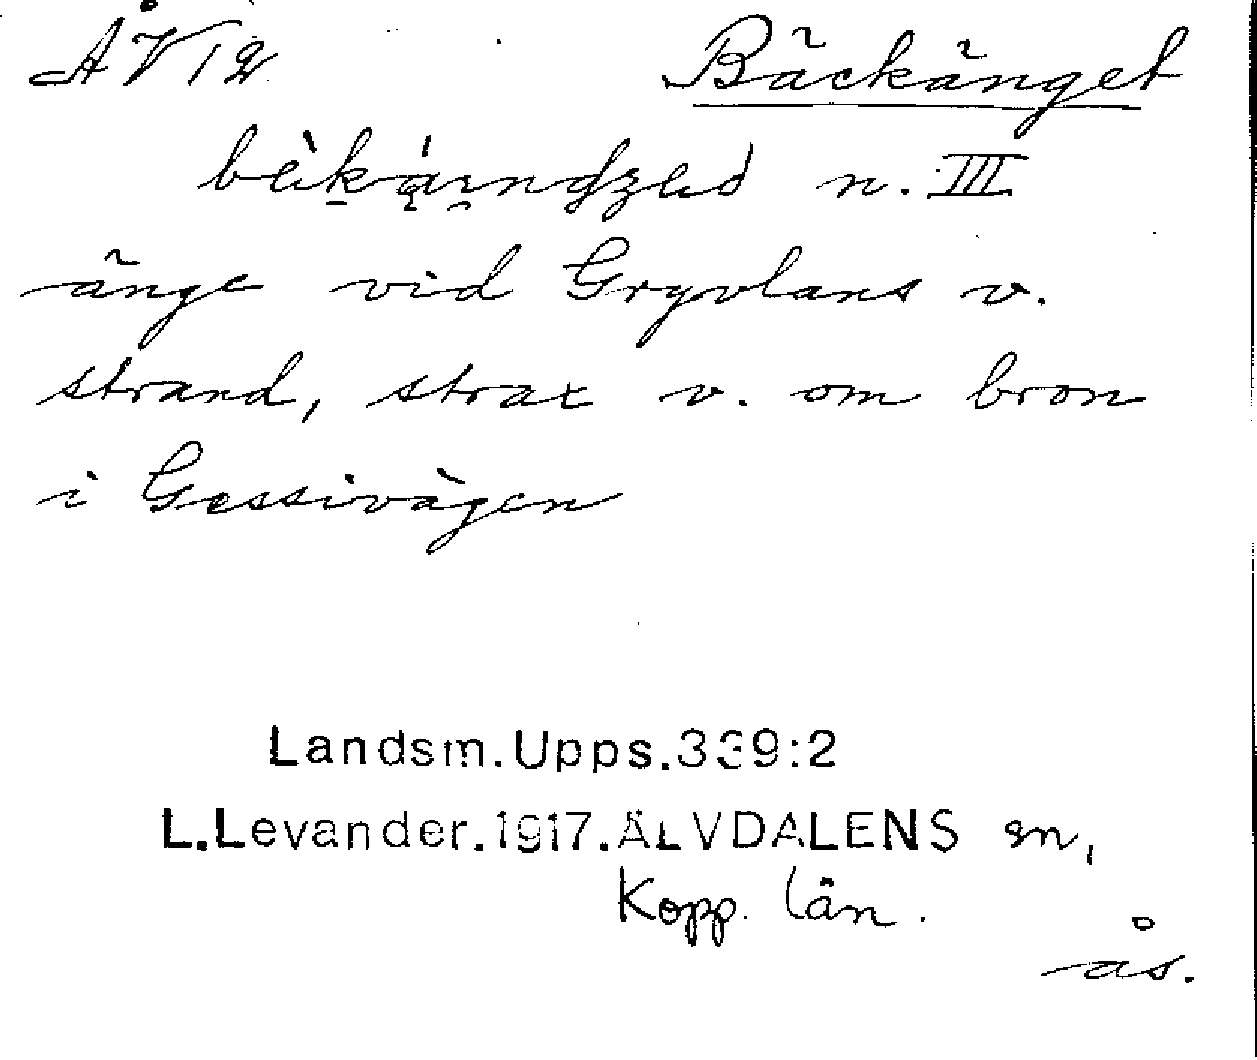 ÅV12 Bäckänget
n. III
änge vid Gryvlans v.
strand, strax v. om bron
i Gessivägen
Landsm.Upps.339:2
L.Levander.1917.ÄLVDALENS sn,
Kopp. län.
ås.